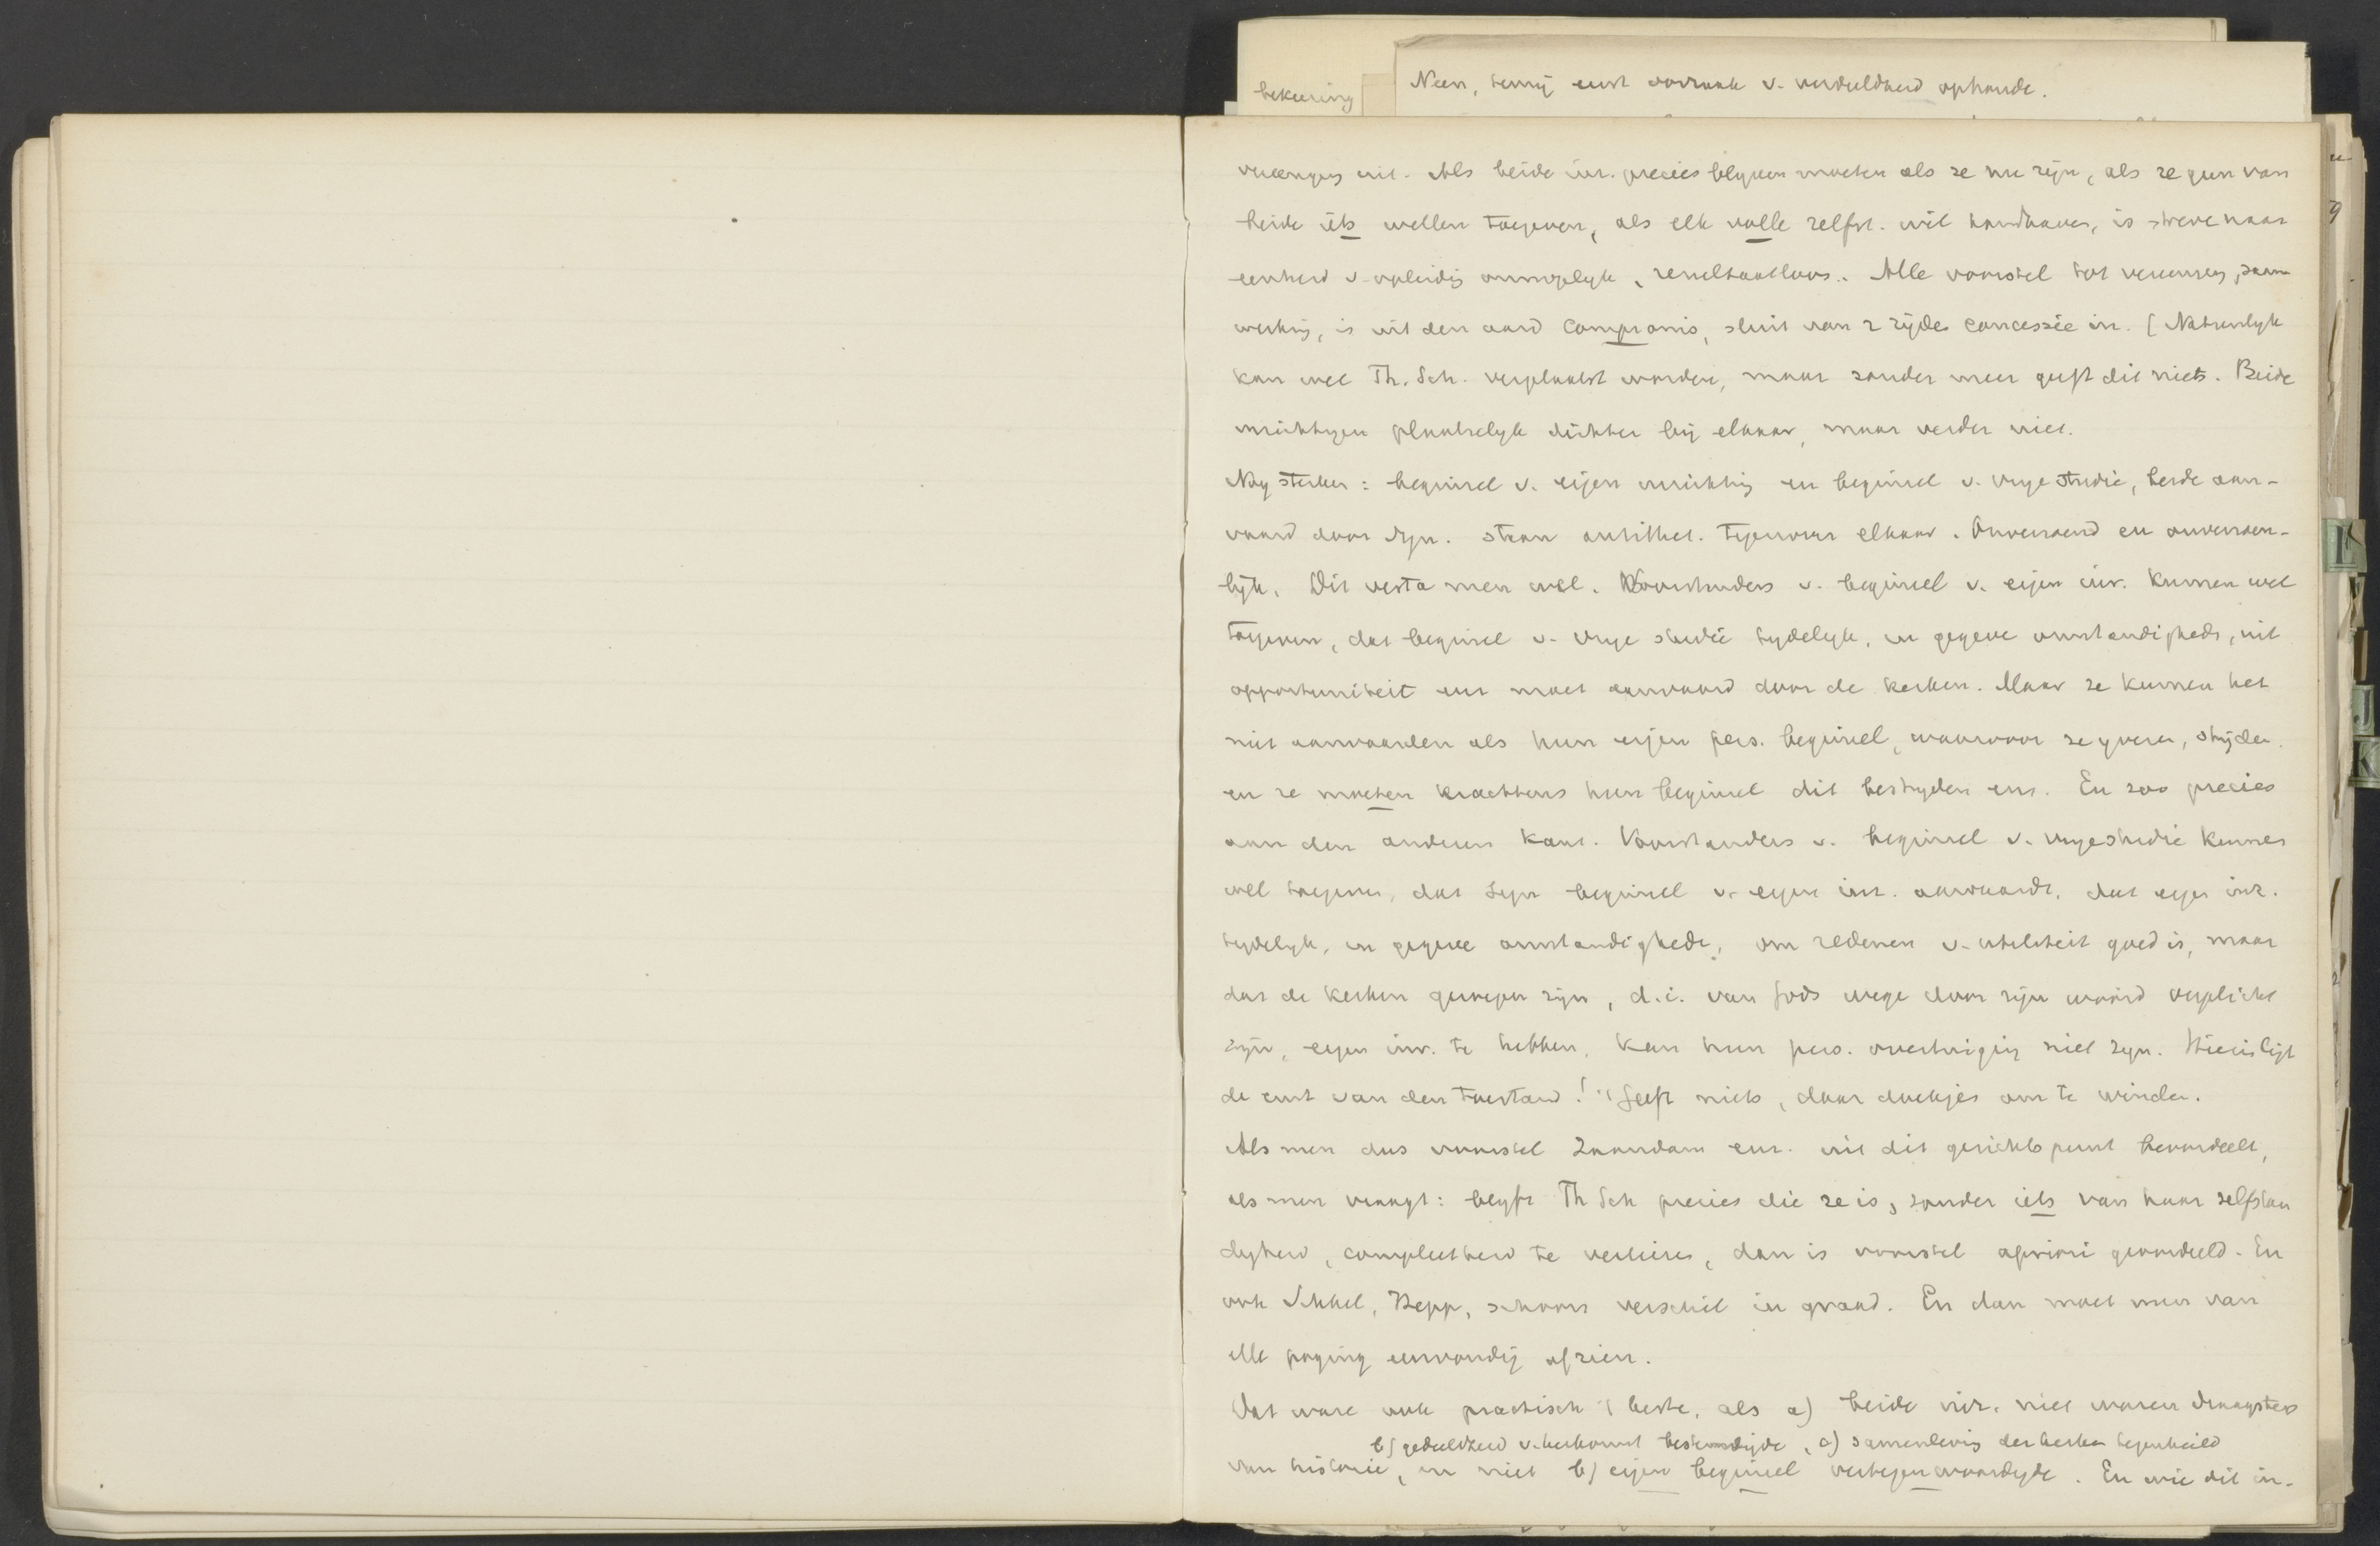 bekeering
Neen, tenzij eerst oorzaak v. verdeeldheid ophoude.
vereenging uit. Als beide inr. precies blyven moeten als ze nu zijn, als ze geen van
beide iets willen toegeven, als elk volle zelfst. wil handhaven, is streve naar
eenheid v. opleidig onmogelyk, resultaatloos.. Alle voorstel tot vereenging, saam
werking, is uit den aard compromis, sluit van 2 zijden concessie in. [Natuurlyk
kan wel Th. Sch. verplaatst worden, maar zonder meer geeft dit niets. Beide
inrichtingen plaatselyk dichter bij elkaar, maar verder niet.
Nog sterker: beginsel v. eigen inrichting en beginsel v. vrye studie, beide aan-
vaard door Syn. staan antithet. tegenover elkaar. Onverzoend en onverzoen-
lijk. Dit versta men wel. Voorstanders v. beginsel v. eigen inr. kunnen wel
toegeven, dat beginsel v. vrye studie tydelyk, in gegeve omstandigheden, uit
opportuniteit enz moet aanvaard door de kerken. Maar ze kunnen het
niet aanvaarden als hun eigen pers. beginsel, waarvoor ze yveren, stryden.
en ze moeten krachtens hun beginsel dit bestryden enz. En zoo precies
aan den anderen kant. Voorstanders v. beginsel v. vrye studie kunnen
wel toegeven, dat Syn beginsel v. eigen inr. aanvaardt, dat eigen inr.
tydelyk, in gegeve omstandigheden, om redenen v. utiliteit goed is, maar
dat de kerken geroepen zijn, d.i. van Gods wege door zijn woord verplicht
zijn, eigen inr. te hebben, kan hun pers. overtuiging niet zyn. Hierin ligt
de ernst van den toestand! 't Geeft niets, daar doekjes om te winden.
Als men dus voorstel Zaandam enz. uit dit gezichtspunt beoordeelt,
als men vraagt: blyft Th Sch precies die ze is, zonder iets van haar zelfstan
dighed, compleetheid te verliezen, dan is voorstel apriori geoordeeld. En
ook Schkel, Bepp, schoon verschil in graad. En dan moet men van
elke poging eenvoudig afzien.
Dat ware ook practisch 't beste, als a) beide inr. niet waren draagsters
b) gedeeldheid v. herkomst bestendigde, c) samenleving der kerken tegenhield
van historie, en niet b) eigen beginsel vertegenwoordigde. En wie dit in-
I
J
K